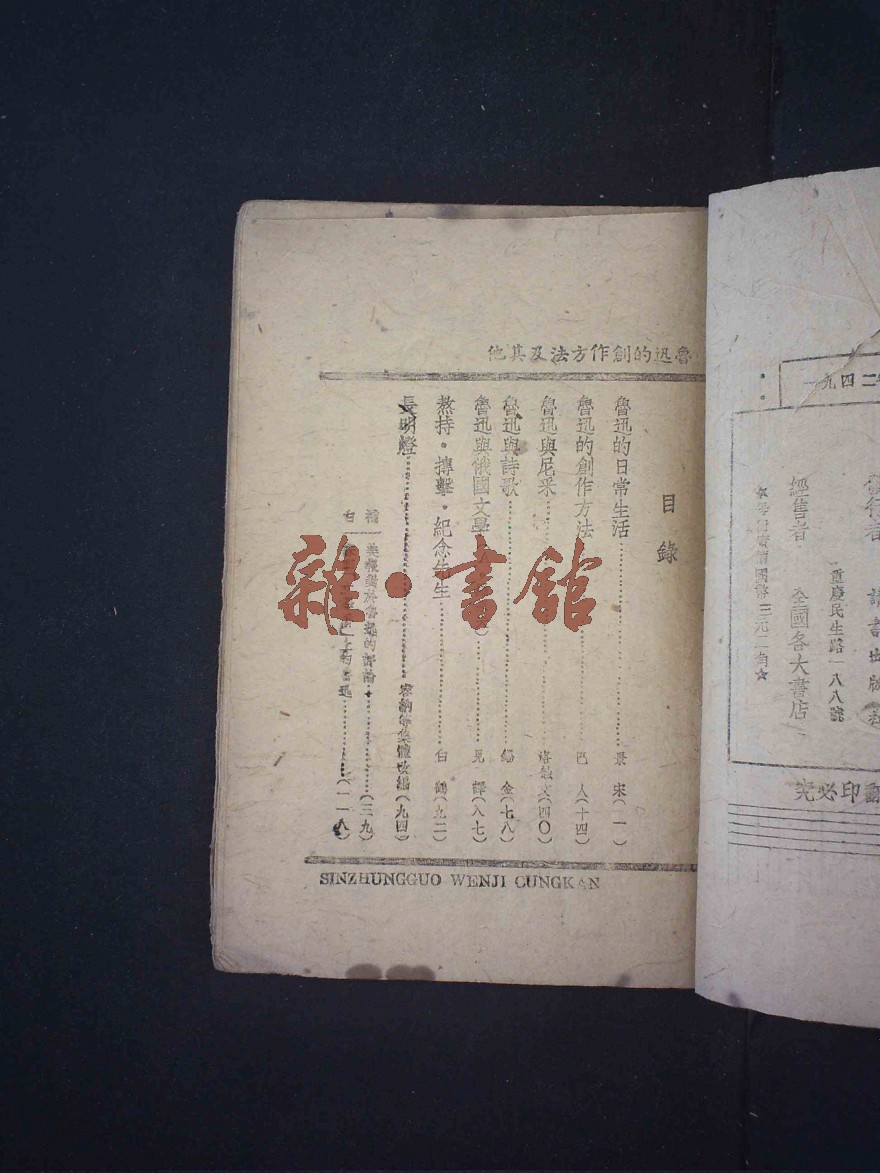 魯迅的創作方法及其他
目錄
魯迅的日常生活 景宋(一)
魯迅的創作方法 巴人(十四)
魯迅與尼采 洛蝕文(四〇)
魯迅與詩歌 錫金(七八)
魯迅與俄國文學 見譯(八七)
熬持・搏擊・紀念先生 白鶴(九二)
長明燈 等集體改編(九四)
補白
魯迅的評論(三九)
上的魯迅(一一八)
SINZHUNGGUO WENJI CUNGKAN
雜・書館
一九四二
發行者 讀書出版社
重慶民生路一八八號
經售者 全國各大書店
國幣三元二角☆
翻印必究